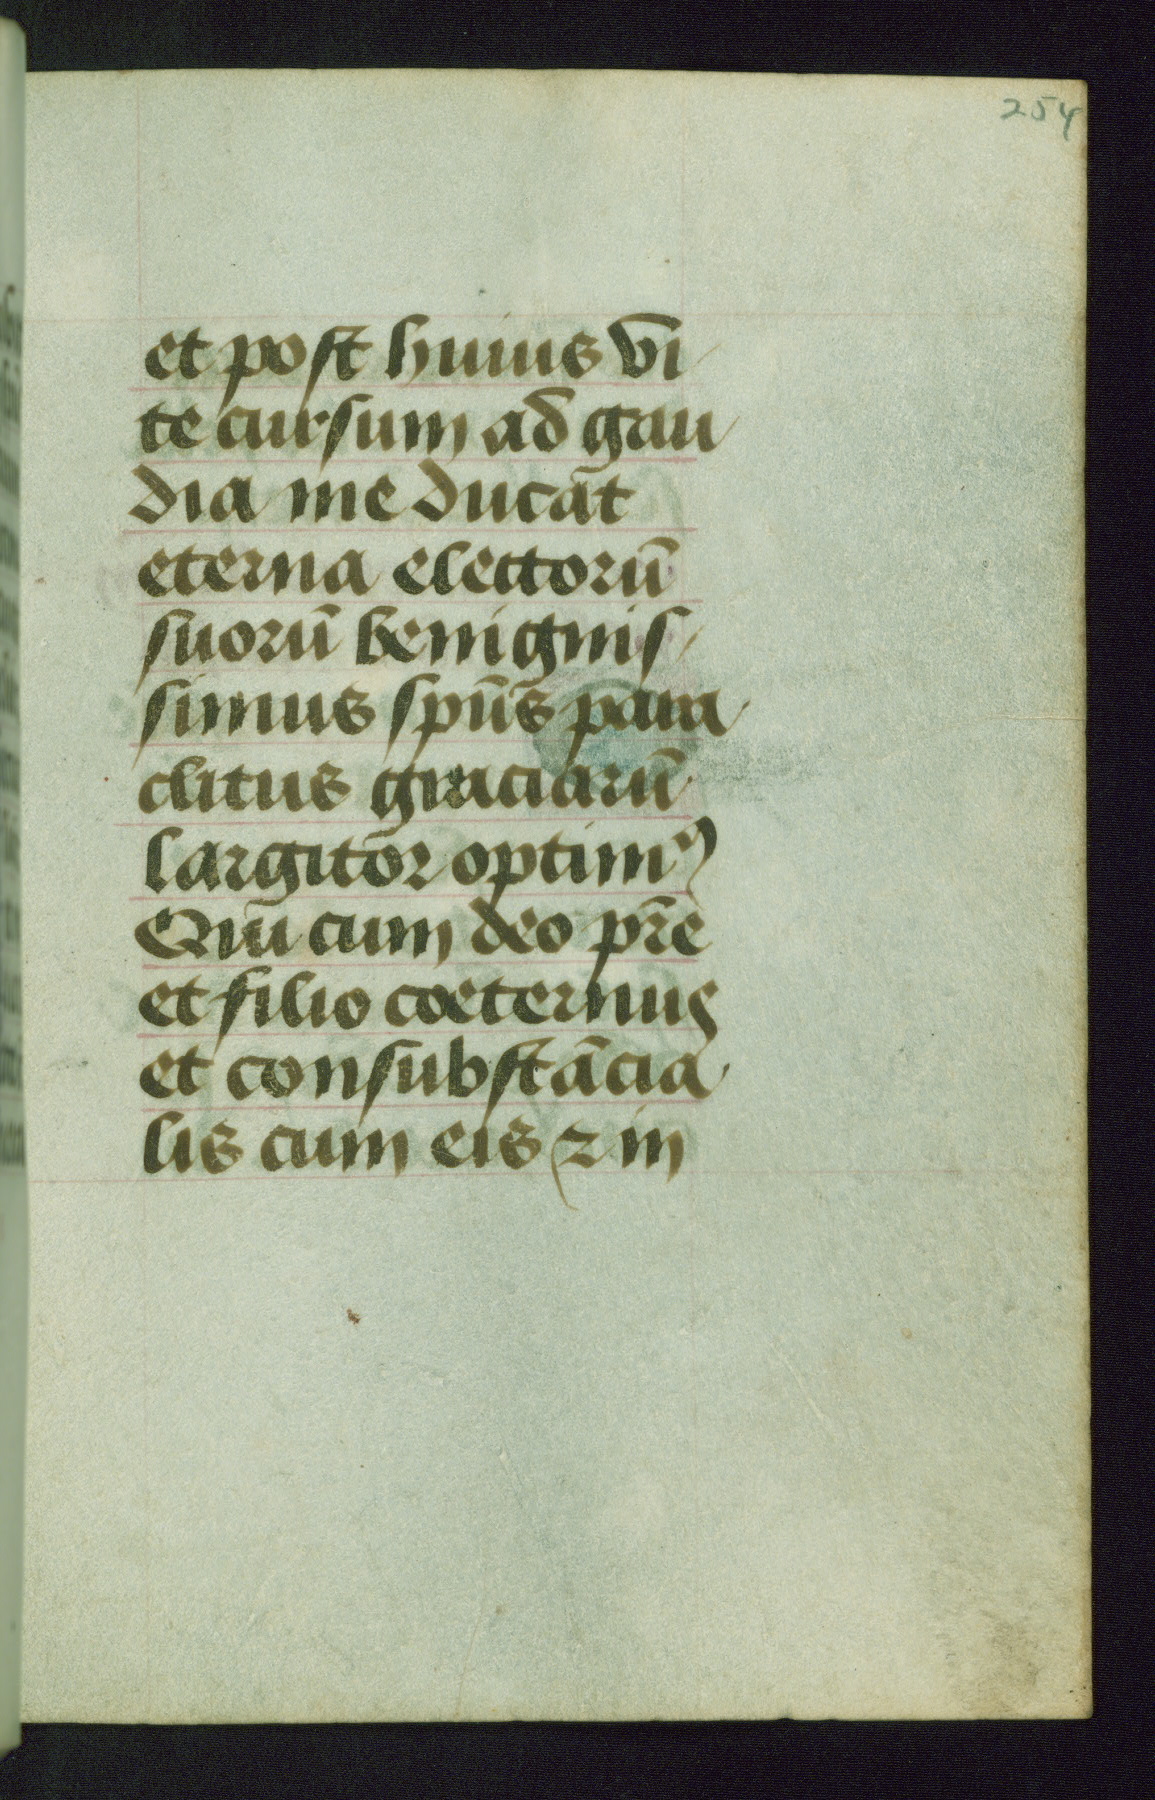 254
et post huius vi
te cursum ad gau
dia me ducat
eterna electorū
suorū benignis
simus spūs para
clitus graciarū
largitor optimꝰ
Qui cum deo pr̄e
et filio coeternus
et consubstācia
lis cum eis ⁊ in